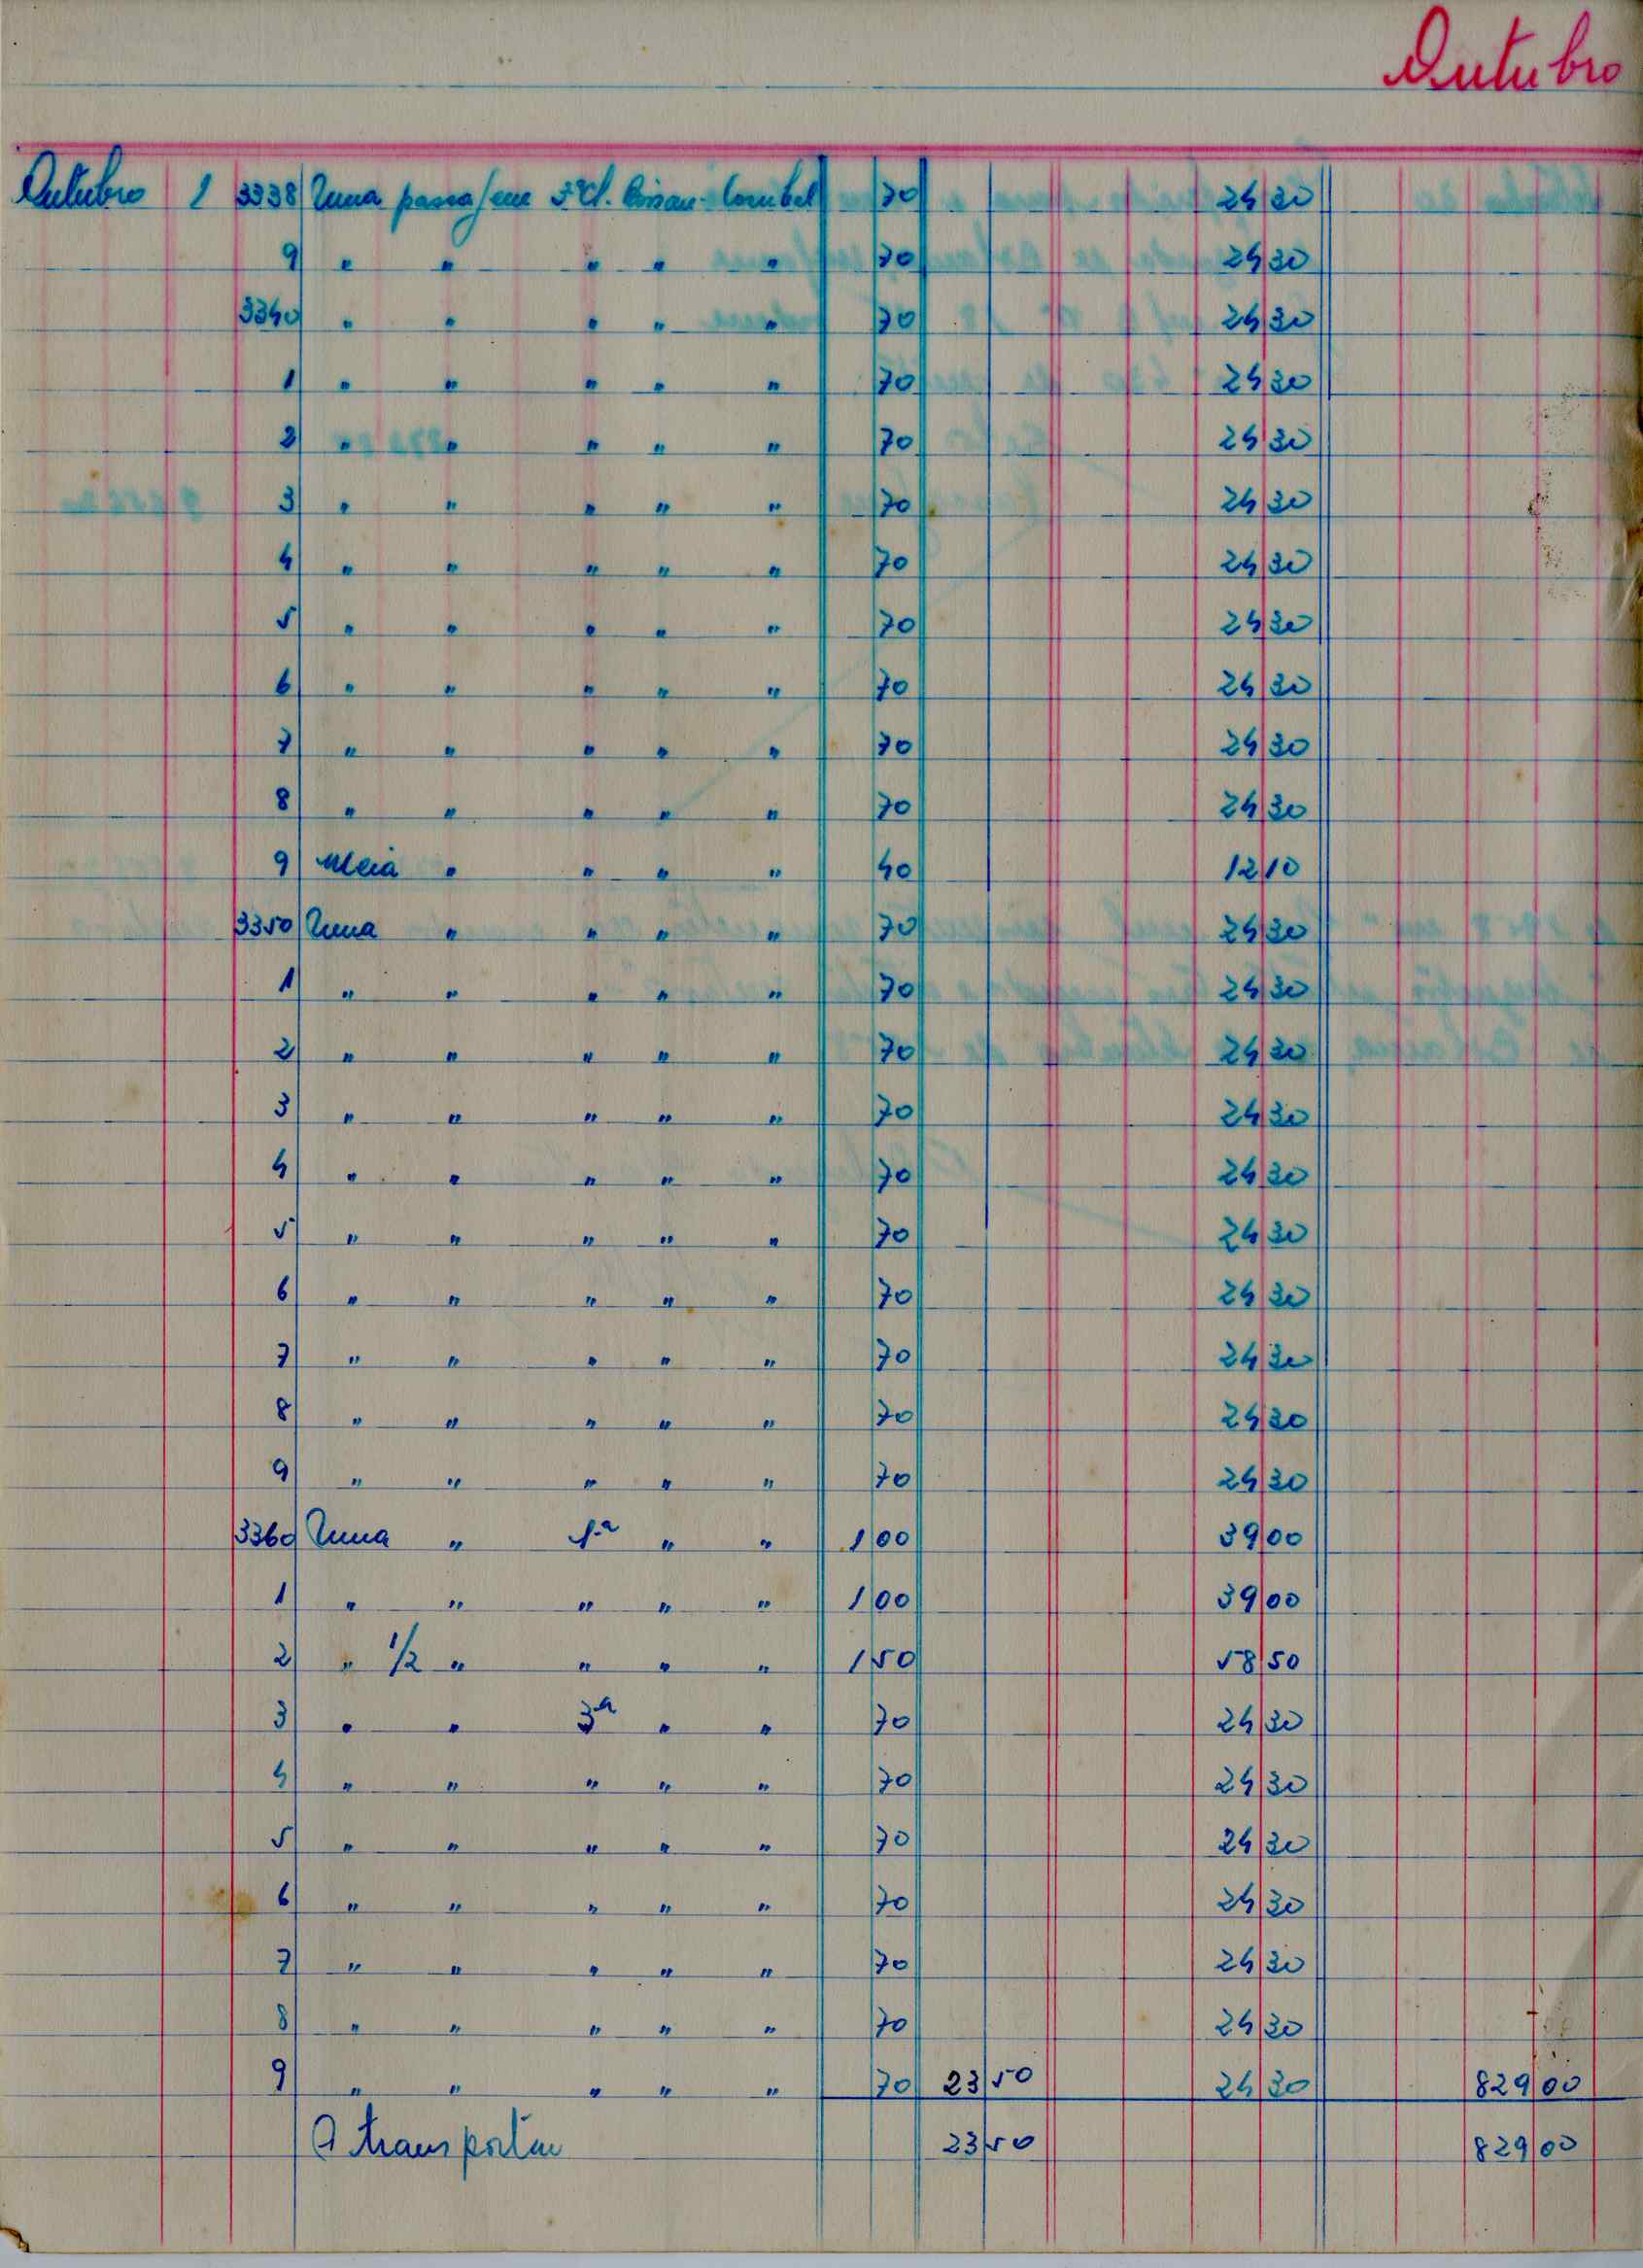 Outubro
Outubro 1 3338 Uma passajem 3ª Cl. Bissau-Corubal 70 24 30
9 " " " " " 70 24 30
3340 " " " " " 70 24 30
1 " " " " " 70 24 30
2 " " " " " 70 24 30
3 " " " " " 70 24 30
4 " " " " " 70 24 30
5 " " " " " 70 24 30
6 " " " " " 70 24 30
7 " " " " " 70 24 30
8 " " " " " 70 24 30
9 Meia " " " " 40 12 10
3350 Uma " " " " 70 24 30
1 " " " " " 70 24 30
2 " " " " " 70 24 30
3 " " " " " 70 24 30
4 " " " " " 70 24 30
5 " " " " " 70 24 30
6 " " " " " 70 24 30
7 " " " " " 70 24 30
8 " " " " " 70 24 30
9 " " " " " 70 24 30
3360 Uma " 1ª " " 1 00 39 00
1 " " " " " 1 00 39 00
2 " 1/2 " " " " 1 50 58 50
3 " " 3ª " " 70 24 30
4 " " " " " 70 24 30
5 " " " " " 70 24 30
6 " " " " " 70 24 30
7 " " " " " 70 24 30
8 " " " " " 70 24 30
9 " " " " " 70 23 50 24 30 829 00
A transportar 23 50 829 00